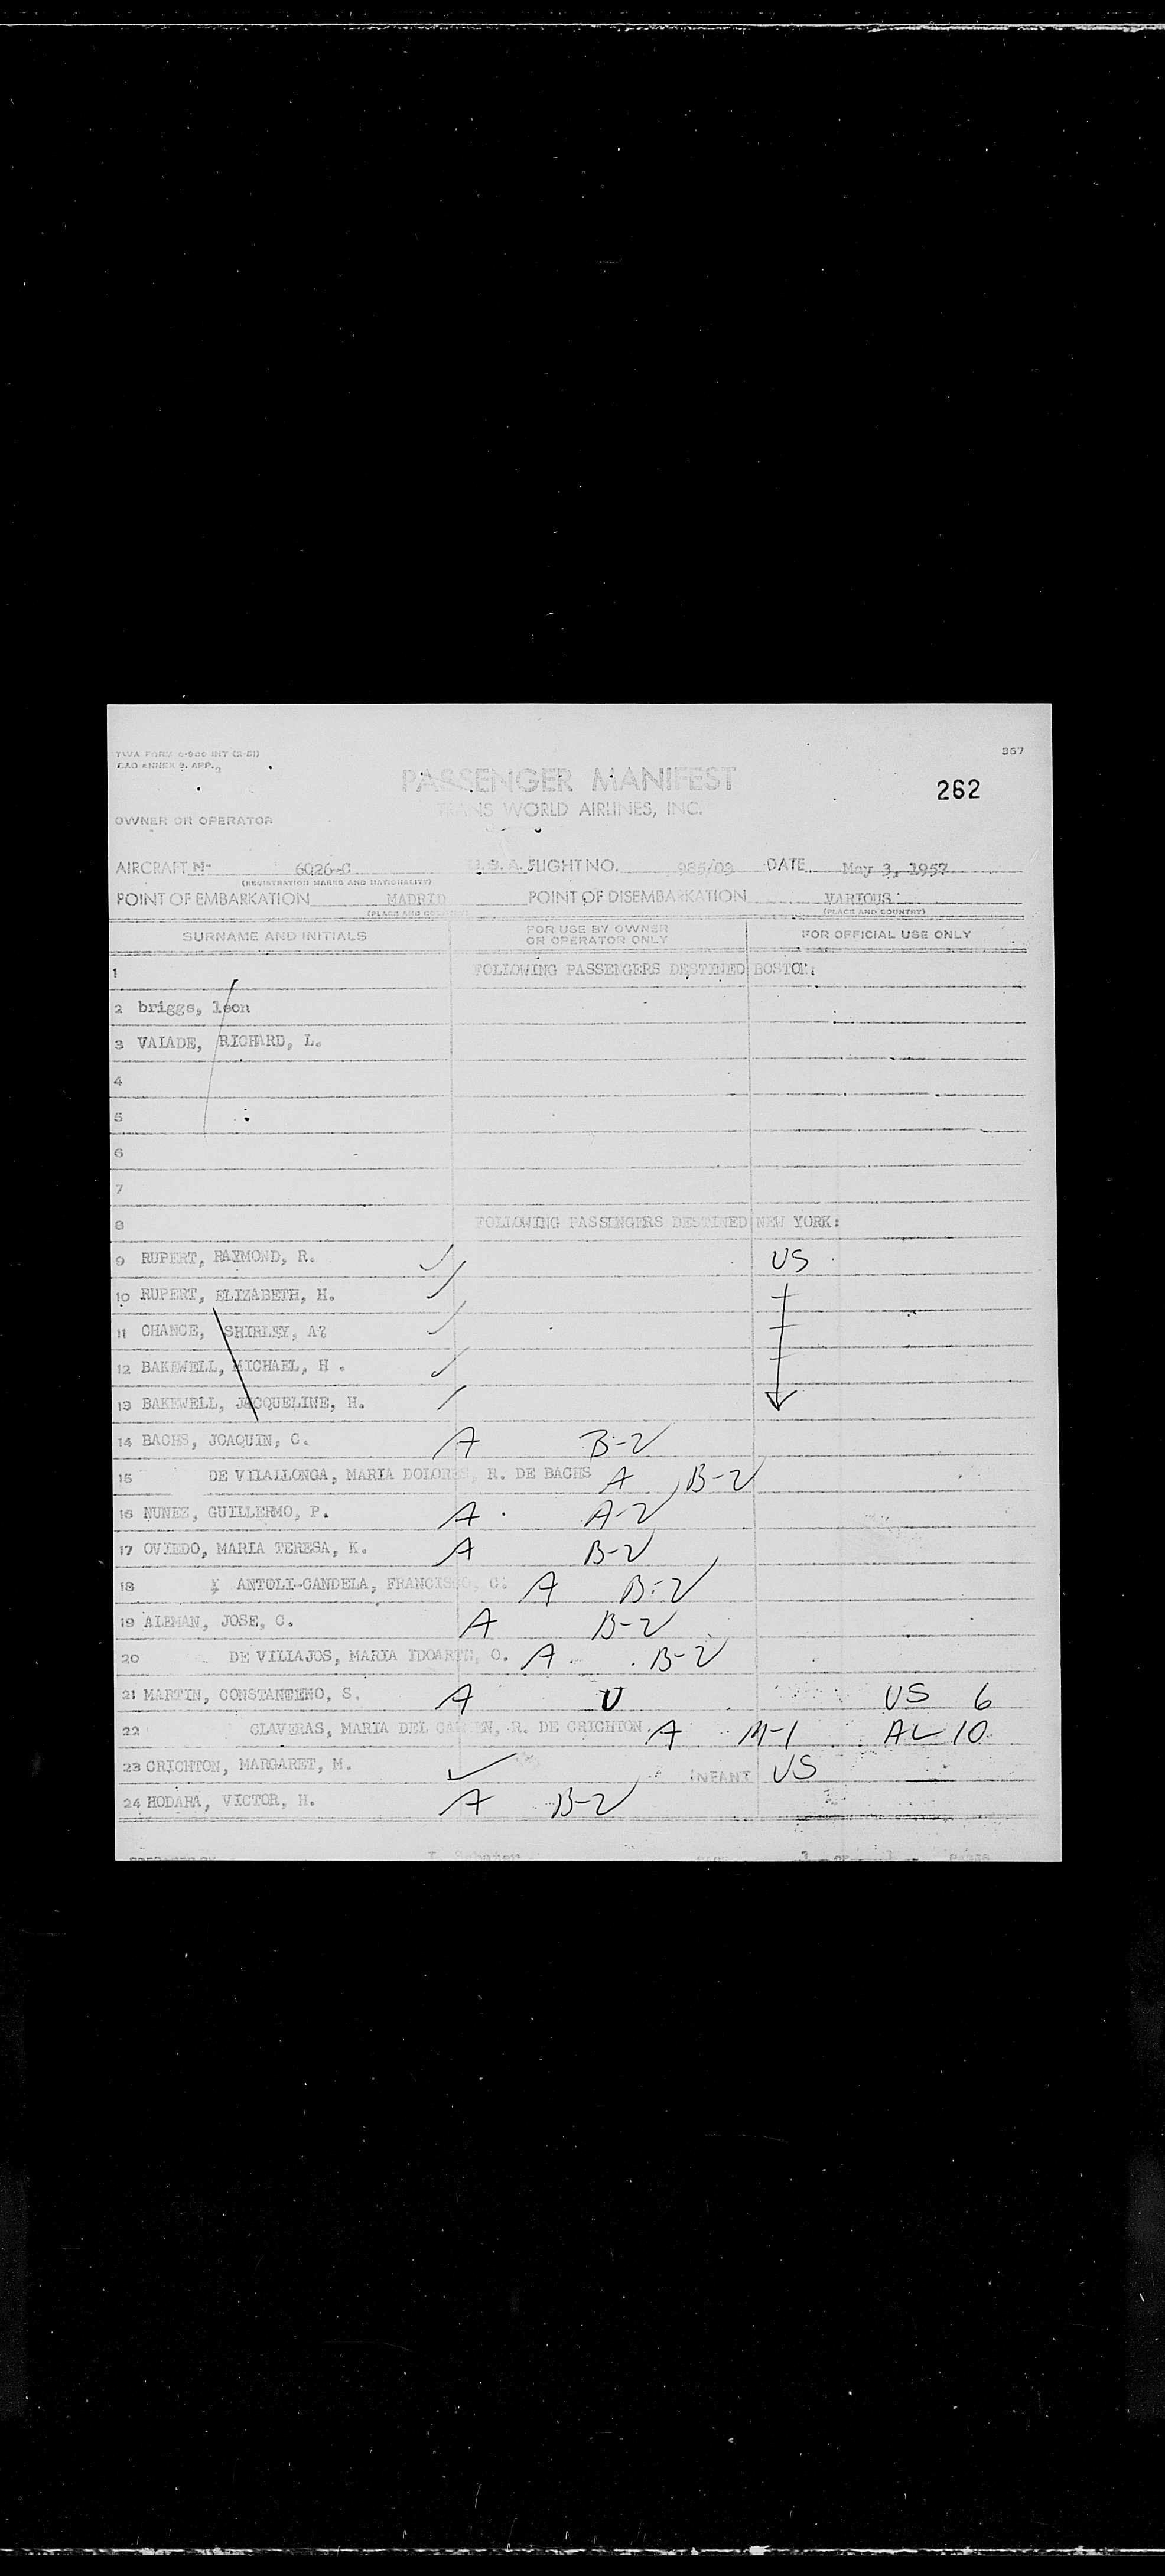 TWA FORM
ICAO ANNEX 9. APP.
867
PASSENGER MANIFEST
262
TRANS WORLD AIRLINES, INC.
OWNER OR OPERATOR
AIRCRAFT No 6026-C U.S.A. FLIGHT NO. 985/03 DATE May 3, 1957
(REGISTRATION MARKS AND NATIONALITY)
POINT OF EMBARKATION MADRID POINT OF DISEMBARKATION VARIOUS
(PLACE AND COUNTRY) (PLACE AND COUNTRY)
SURNAME AND INITIALS FOR USE BY OWNER OR OPERATOR ONLY FOR OFFICIAL USE ONLY
1 FOLLOWING PASSENGERS DESTINED BOSTON:
2 briggs, leon
3 VALADE, RICHARD, L.
4
5
6
7
8 FOLLOWING PASSENGERS DESTINED NEW YORK:
9 RUPERT, RAYMOND, R. US
10 RUPERT, ELIZABETH, H.
11 CHANCE, SHIRLEY, A?
12 BAKEWELL, MICHAEL, H.
13 BAKEWELL, JACQUELINE, H.
14 BACHS, JOAQUIN, C. A B-2
15 DE VILALLONGA, MARIA DOLORES, R. DE BACHS A B-2
16 NUNEZ, GUILLERMO, P. A A-2
17 OVIEDO, MARIA TERESA, K. A B-2
18 ANTOLI-CANDELA, FRANCISCO, C. A B-2
19 ALEMAN, JOSE, C. A B-2
20 DE VILLAJOS, MARIA IDOARTE, O. A B-2
21 MARTIN, CONSTANTINO, S. A U US 6
22 CLAVERAS, MARIA DEL CARMEN, R. DE CRICHTON A M-1 AL 10
23 CRICHTON, MARGARET, M. INFANT US
24 HODARA, VICTOR, H. A B-2